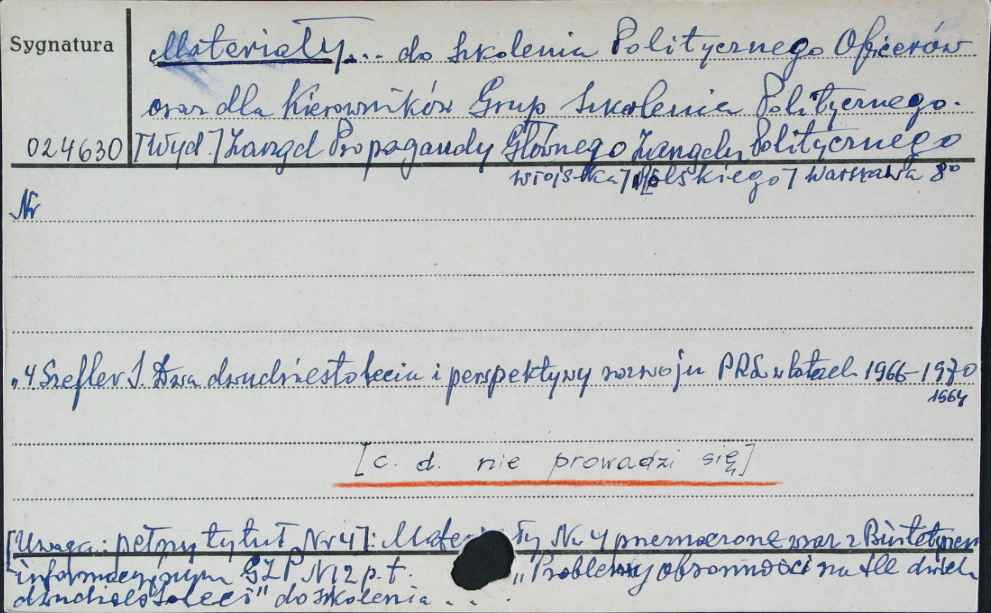 Sygnatura
Materiały... do szkolenia Politycznego Oficerów
oraz dla Kierowników Grup Szkolenia Politycznego.
024630 [Wyd.] Zarząd Propagandy Głównego Zarządu Politycznego
Wojska Polskiego] Warszawa 8°
Nr
"4 Szefler S. Dwa dwudziestolecia i perspektywy rozwoju PRL w latach 1966-1970
1964
[c. d. nie prowadzi się]
[Uwaga: pełny tytuł Nr 4]: Materiały Nr 4 przeznaczone wraz z Biuletynem
informacyjnym GZP Nr 2 p.t. "Problemy obronności na tle dwóch
dwudziestoleci" do szkolenia...